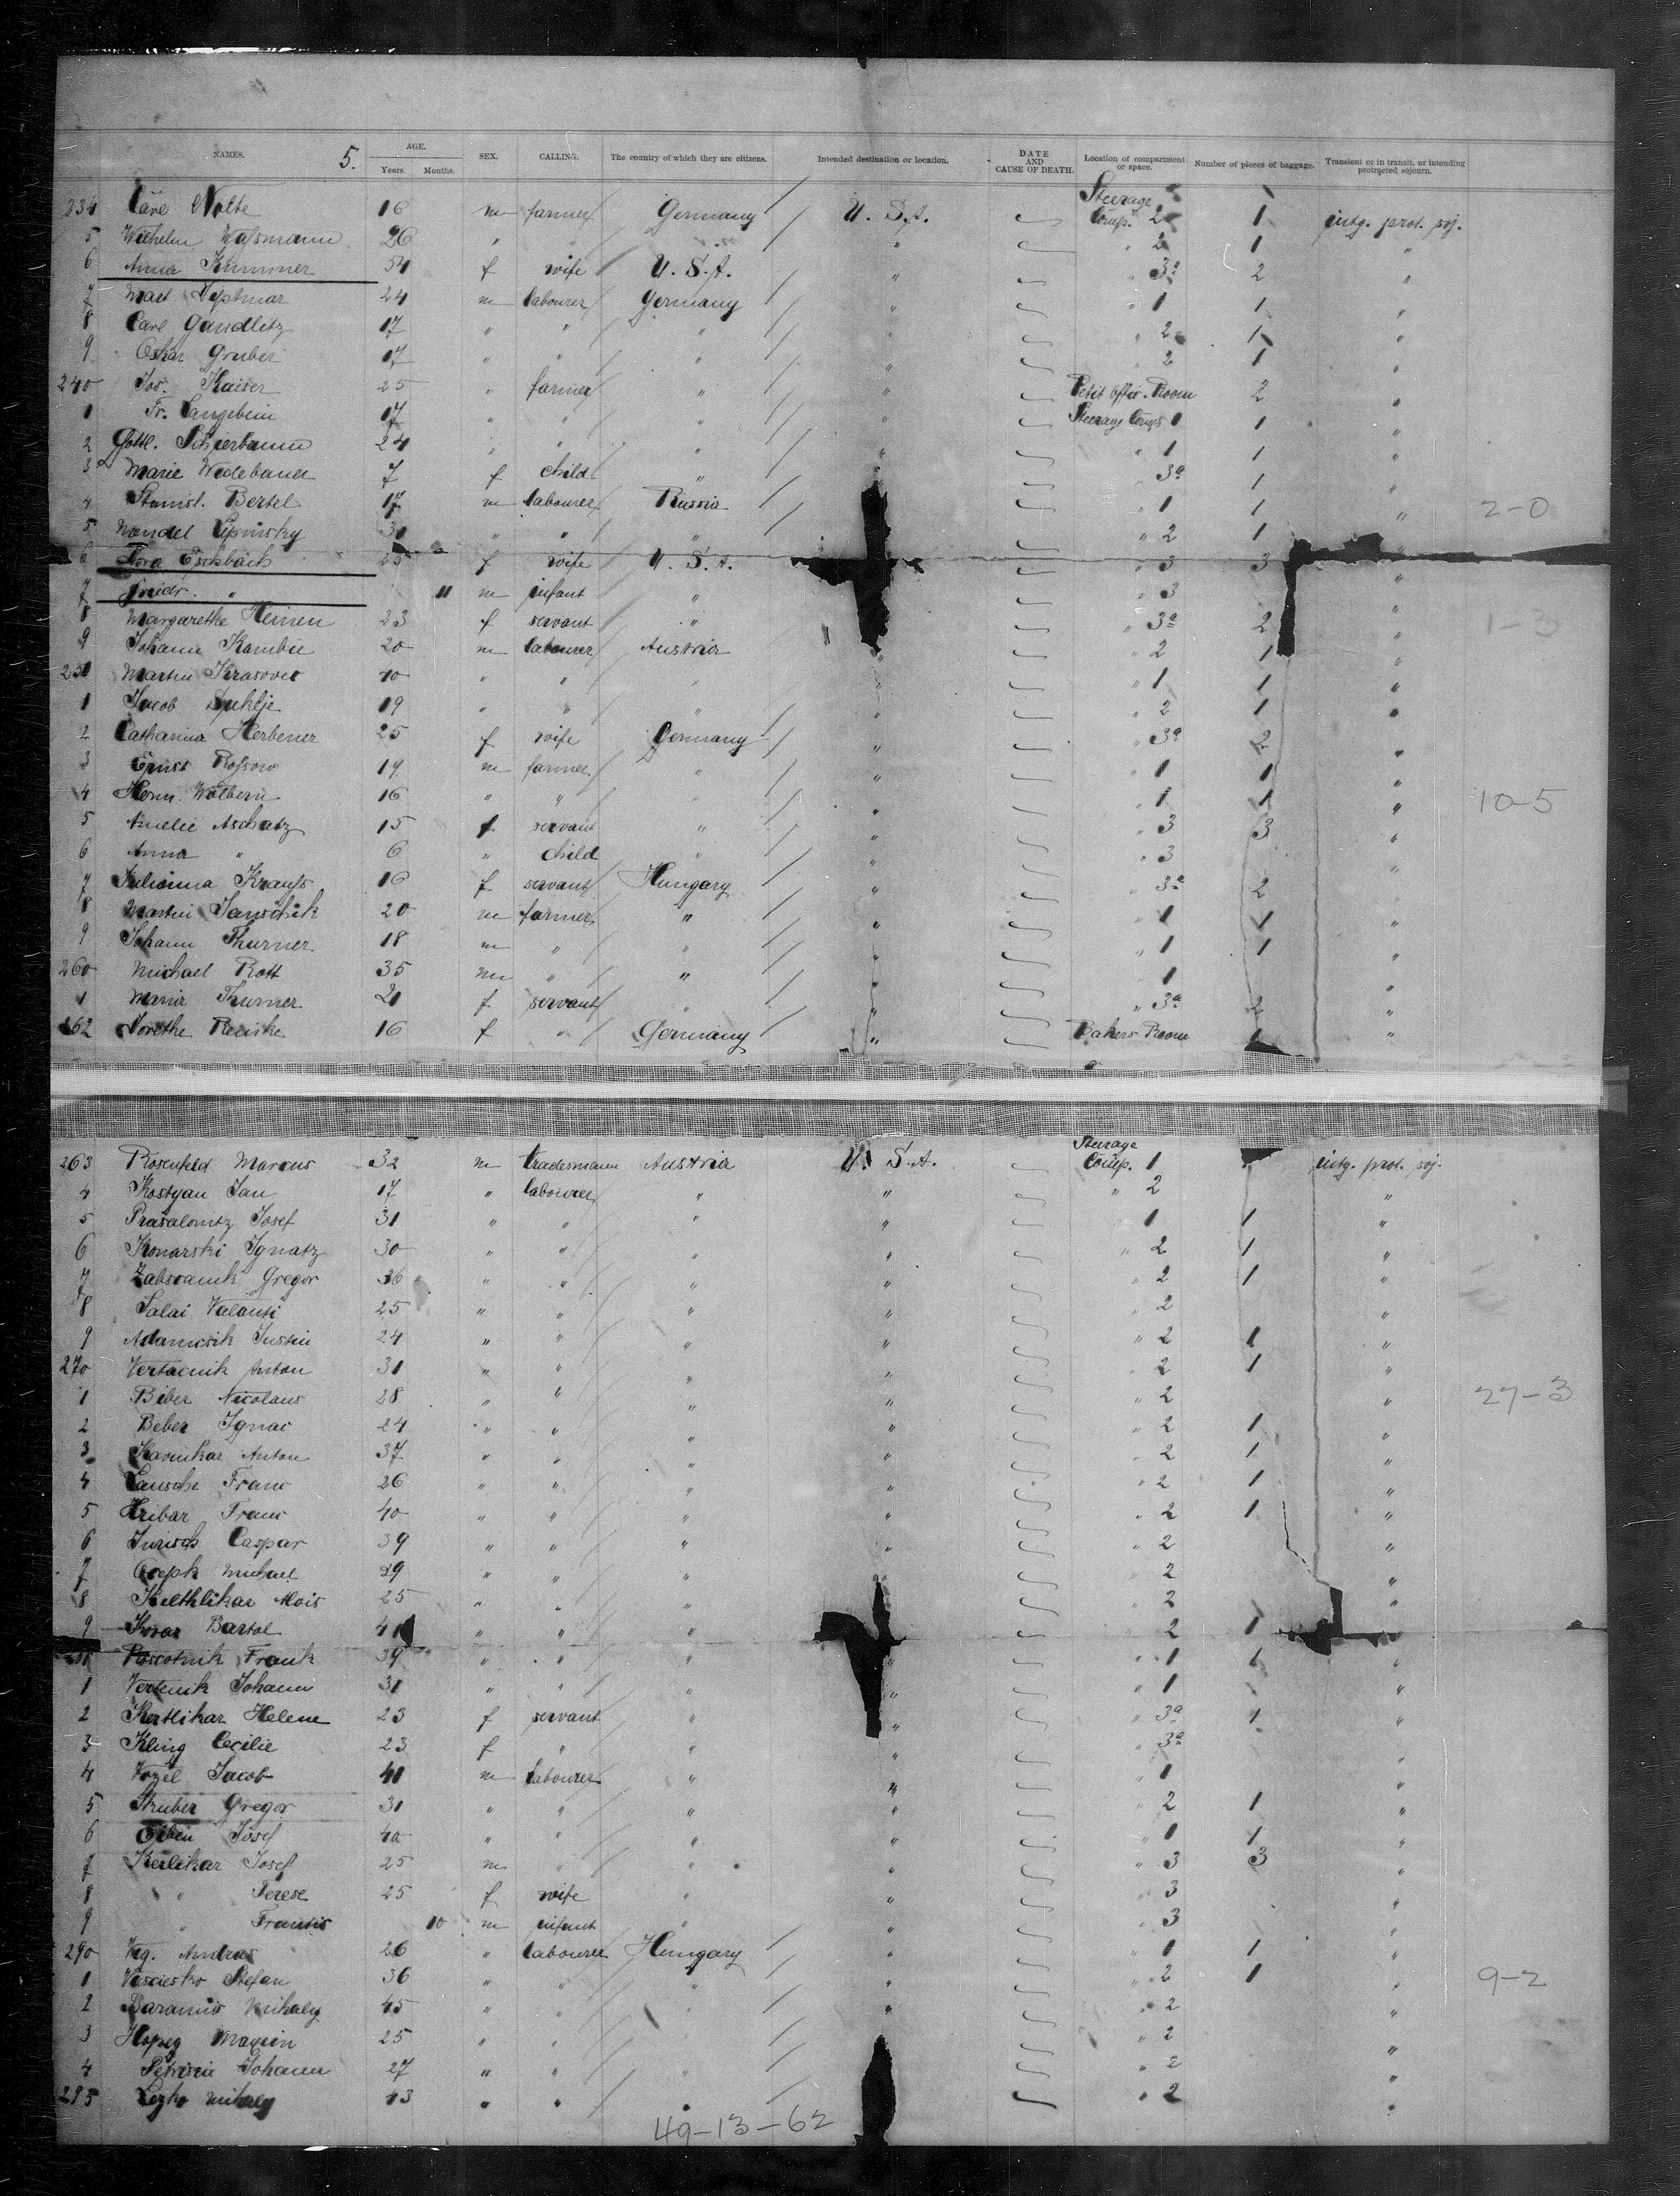 NAMES. 5. AGE. Years. Months. SEX. CALLING. The country of which they are citizens. Intended destination or location. DATE AND CAUSE OF DEATH. Location of compartment or space. Number of pieces of baggage. Transient or in transit, or intending protracted sojourn.
234 Carl Nolte 16 m farmer Germany U. S. A. Steerage Comp. 2 1 intg. prot. soj.
5 Wilhelm Waßmann 26 " " " " " 2 1 "
6 Anna Kummer 54 f wife U. S. A. " " 3a 2 "
7 24 m labourer Germany " " 1 1 "
8 Carl Gandlitz 17 " " " " " 2 1 "
9 Oskar Gruber 17 " " " " " 2 1 "
240 Jos. Kaiser 25 " farmer " " Petit Offic. Room 2 "
1 Fr. Langebein 17 " " " " Steerage Comp 1 1 "
2 Gottl. Schierbaum 24 " " " " " 1 1 "
3 Marie Wedebauer 7 f child " " " 3a 1 "
4 Stanisl. Bertel 17 m labourer Russia " 1 1 " 2-0
5 Mendel Lipvinsky 31 " " " " 2 1
6 Eschbach 25 f wife U. S. A. " 3 3
7 Friedr. " 11 m infant " " 3 "
8 Margarethe Heinen 23 f servant " " 3a 2 " 1-3
9 Johann Kambic 20 m labourer Austria " " 2 1 "
250 Martin Krasovec 40 " " " " " 1 1 "
1 Jacob Suhlje 19 " " " " " 2 1 "
2 Catharina Herbener 25 f wife Germany " " 3a 2 "
3 Ernst Roßow 19 m farmer " " " 1 1 "
4 Herm. Wölbern 16 " " " " " 1 1 " 10-5
5 Amelie Aschatz 15 f servant " " " 3 3 "
6 Anna " 6 " child " " " 3
7 Julianna Krauß 16 f servant Hungary " " 3a 2 "
8 Martin Janschik 20 m farmer " " " 1 1 "
9 Johann Thurner 18 m " " " " 1 1 "
260 Michael Rott 35 m " " " 1
1 Maria Thurner 21 f servant " " " 3a 2 "
262 Dorethe Reiske 16 f " Germany " Bakers Room 1 "
263 Rosenfeld Marcus 32 m tradesmann Austria U. S. A. Steerage Comp. 1 intg. prot. soj.
4 Kostyan Jan 17 " labourer " " " 2 "
5 Prasalowitz Josef 31 " " " " " 1 1 "
6 Konarski Ignatz 30 " " " " " 2 1 "
7 Gregor 36 " " " " " 2 1 "
8 Salai 25 " " " " " 2 "
9 Adamcsik Justin 24 " " " " " 2 1 "
270 Vertacnik Anton 31 " " " " " 2 1 "
1 Biber Nicolaus 28 " " " " " 2 " 27-3
2 Beber Ignac 24 " " " " " 2 1 "
3 Kavnikar Anton 37 " " " " " 2 1 "
4 Lausche Franc 26 " " " " " 2 1 "
5 Hribar Franc 40 " " " " " 2 1 "
6 Jurisch Caspar 39 " " " " " 2 "
7 Michael 29 " " " " " 2 "
8 Alois 25 " " " " 2 "
9 Kovar Bartol 41 " " " " 2 1
Frank 39 " " " " " 1 1 "
1 Vertcnik Johann 31 " " " " " 1 "
2 Kertlikar Helene 23 f servant " " " 3a 1 "
3 Kling Cecilie 23 f " " " " 3a "
4 Vozel Jacob 41 m labourer " " " 1 "
5 Struber Gregor 31 " " " " " 2 1 "
6 Josef 40 " " " " " 1 1 "
7 Kerlikar Josef 25 m " " " " 3 3 "
8 " Terese 25 f wife " " " 3 "
9 " 10 m infant " " " 3 "
290 Vig. Andras 26 " labourer Hungary " " 1 1 "
1 Stefan 36 " " " " " 2 1 " 9-2
2 Mihaly 45 " " " " " 2 "
3 25 " " " " 2 "
4 Johann 27 " " " " 2 "
295 Mihaly 43 " " " " 2 "
49-13-62